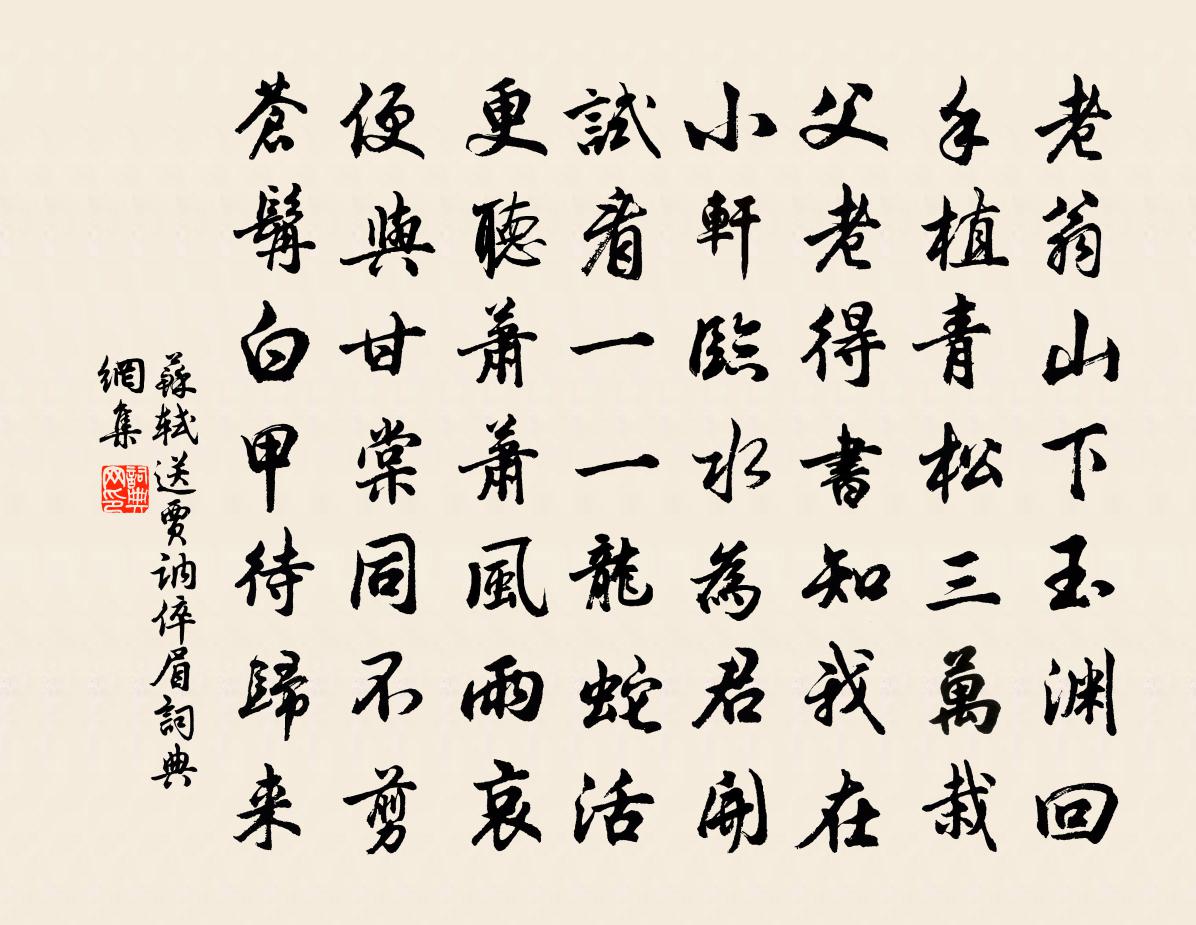 老翁山下玉渊回
手植青松三萬栽
父老得書知我在
小軒臨水為君開
試看一一龍蛇活
更聽蕭蕭風雨哀
便與甘棠同不剪
蒼髯白甲待歸来
蘇軾送賈讷倅眉詞典
網集
詞典网印